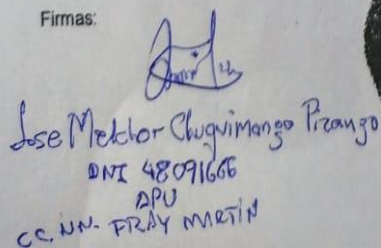 Firmas:
Jose Melchor Chuquimango Pizango
DNI 48091666
APU
CC. NN. FRAY MARTIN